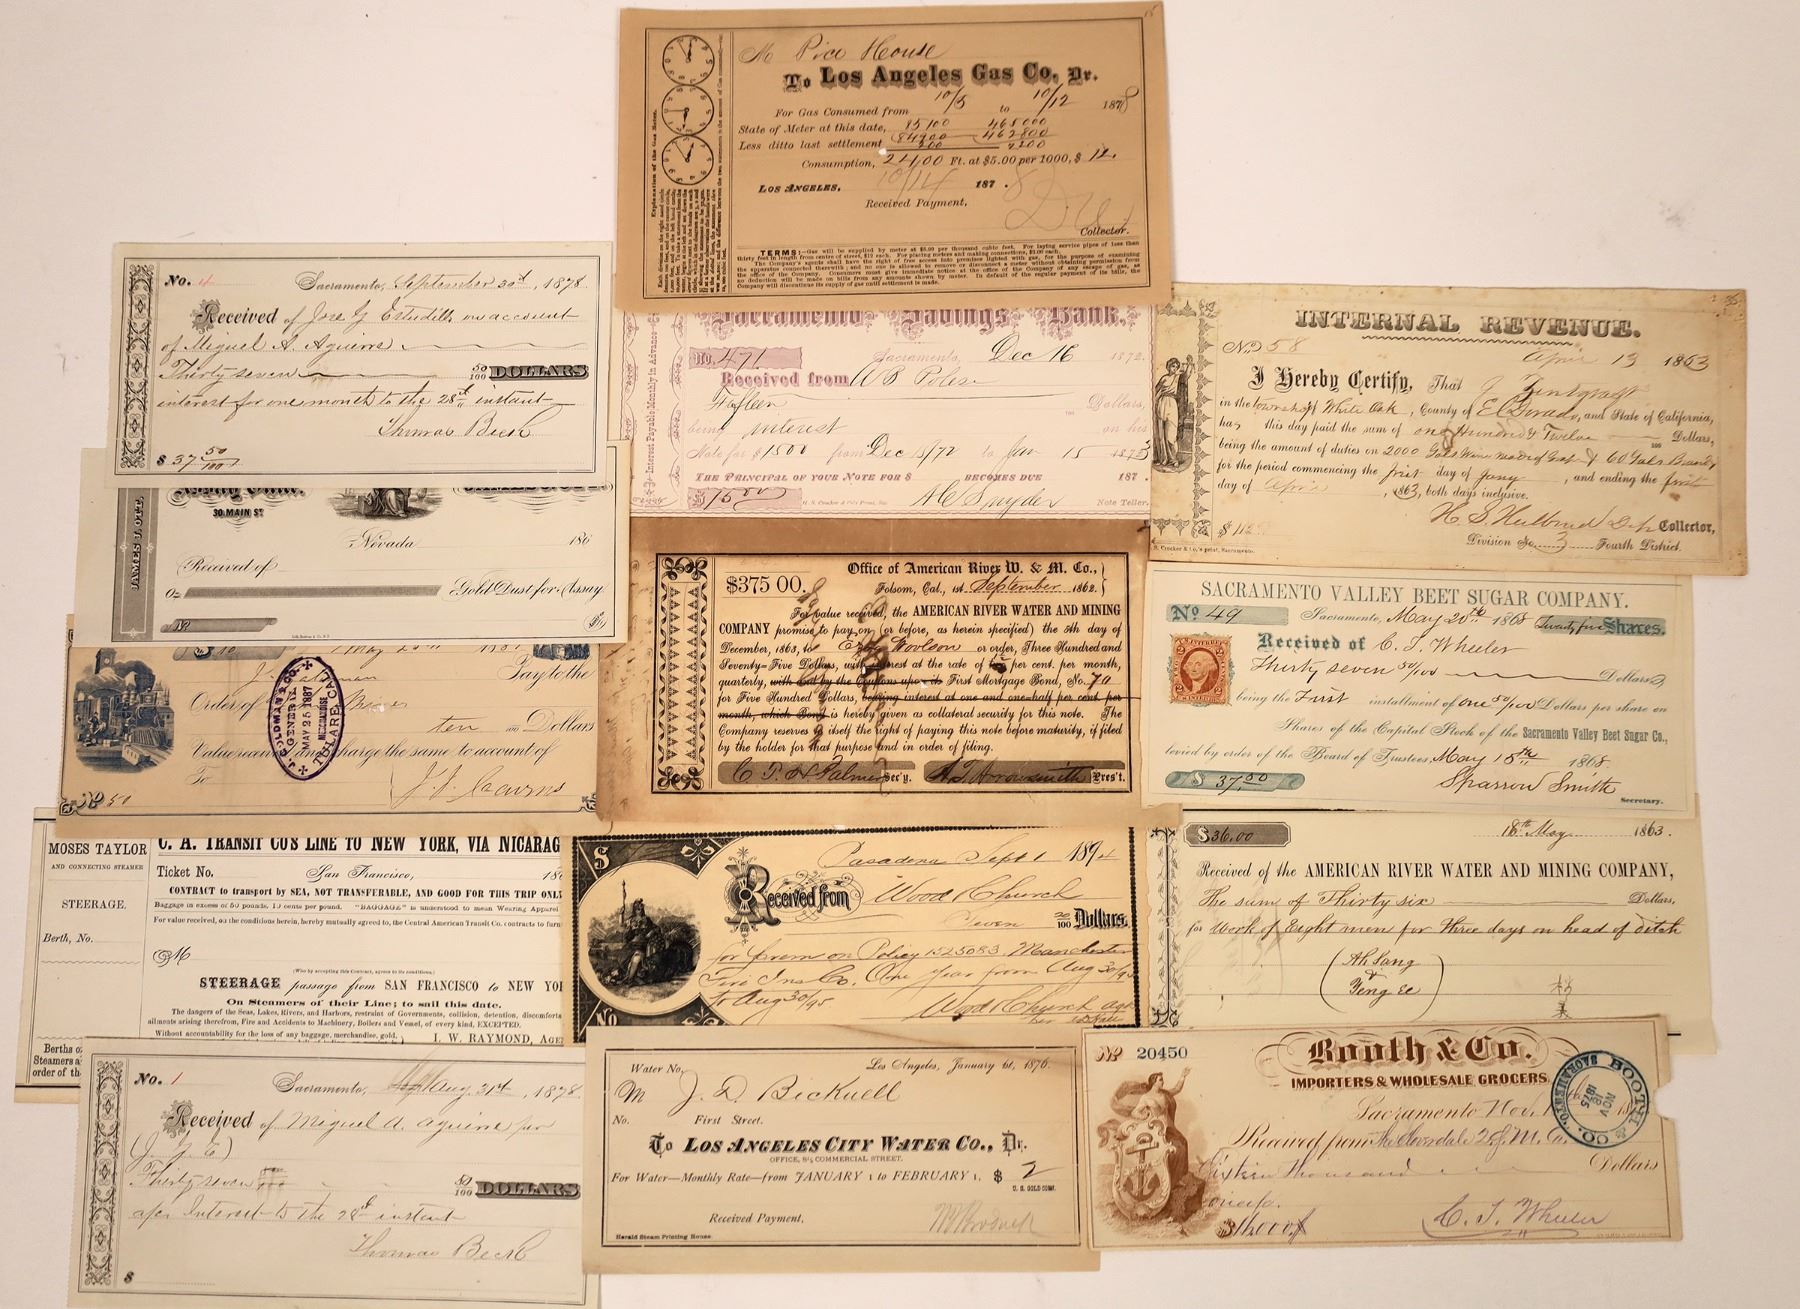 M Pico House
To Los Angeles Gas Co, Dr.
For Gas Consumed from 10/5 to 10/12 1878
State of Meter at this date, 85100 465000
Less ditto last settlement 84900 462800
200 2200
Consumption, 2400 Ft. at $5.00 per 1000, $ 12.
Los Angeles, 10/14 187.8
Received Payment,
Collector.
TERMS:—Gas will be supplied by meter at $5.00 per thousand cubic feet. For laying service pipes of less than
thirty feet in length from centre of street, $12 each. For placing meters and making connections, $3.00 each.
The Company's agents shall have the right of free access into premises lighted with gas, for the purpose of examining
the apparatus connected therewith; and no one is allowed to remove or disconnect a meter without obtaining permission from
the office of the Company. Consumers must give immediate notice at the office of the Company of any escape of gas, as
no deduction will be made on bills from any amounts shown by meter. In default of the regular payment of its bills, the
Company will discontinue its supply of gas until settlement is made.
Explanation of the Gas Meter.
No. 4 Sacramento, September 30th, 1878
Received of Jose G Estudillo on account
of Miguel A. Aguirre
Thirty seven 50/100 DOLLARS
interest for one month to the 28th instant
Thomas Beck
$ 37 50/100
Sacramento Savings Bank.
No. 471 Sacramento, Dec 16 1872.
Received from W B Polese
Fifteen Dollars,
being interest on his
Note for $1500 from Dec 15/72 to Jan 15 1873
THE PRINCIPAL OF YOUR NOTE FOR $ BECOMES DUE 187 .
$15.00
Note Teller.
Interest Payable Monthly in Advance
INTERNAL REVENUE.
No. 58 April 13 1863
I Hereby Certify, That J Zentgraff
in the township of White Oak, County of El Dorado, and State of California,
has this day paid the sum of one Hundred & Twelve Dollars,
being the amount of duties on 2000 Gals Wine made of Grap & 60 Gals Brandy
for the period commencing the first day of Jany, and ending the first
day of April, 1863, both days inclusive.
Dep Collector,
$ 112
Division No. 3 Fourth District.
Crocker & Co.'s print, Sacramento.
JAMES J. OTT.
30 MAIN ST.
Nevada 186
Received of
Oz Gold Dust for Assay.
No
$375 00. Office of American River W. & M. Co.,
Folsom, Cal., 1st September 1862.
For value received, the AMERICAN RIVER WATER AND MINING
COMPANY promise to pay on (or before, as herein specified) the 5th day of
December, 1863, to Woolson or order, Three Hundred and
Seventy-Five Dollars, with interest at the rate of per cent. per month,
quarterly, with the Coupons upon its First Mortgage Bond, No. 70
for Five Hundred Dollars, bearing interest at one and one-half per cent per
month, which Bond is hereby given as collateral security for this note. The
Company reserves to itself the right of paying this note before maturity, if filed
by the holder for that purpose and in order of filing.
C. T. H. Palmer Sec'y. A. T. Arrowsmith Pres't.
SACRAMENTO VALLEY BEET SUGAR COMPANY.
No 49 Sacramento, May 20th 1868 Twenty five Shares.
Received of C. T. Wheeler
Thirty seven 50/100 Dollars,
being the First installment of one 50/100 Dollars per share on
Shares of the Capital Stock of the Sacramento Valley Beet Sugar Co.,
levied by order of the Board of Trustees, May 15th 1868.
$ 37.50 Sparrow Smith
Secretary.
Pay to the
Order of
ten Dollars
Value received and charge the same to account of
To J. J. Cairns
No 50
J. GOLDMAN & CO.
GENERAL
MAY 25 1887
MERCHANDISE,
TULARE CITY
MOSES TAYLOR
AND CONNECTING STEAMER
STEERAGE.
Berth, No.
C. A. TRANSIT CO'S LINE TO NEW YORK, VIA NICARAG
Ticket No. San Francisco, 186
CONTRACT to transport by SEA, NOT TRANSFERABLE, AND GOOD FOR THIS TRIP ONL
Baggage in excess of 50 pounds, 10 cents per pound. "BAGGAGE" is understood to mean Wearing Apparel
For value received, on the conditions herein, hereby mutually agreed to, the Central American Transit Co. contracts to furn
M
(Who by accepting this Contract, agrees to its conditions,)
STEERAGE passage from SAN FRANCISCO to NEW YO
On Steamers of their Line; to sail this date.
The dangers of the Seas, Lakes, Rivers, and Harbors, restraint of Governments, collision, detention, discomforts
ailments arising therefrom, Fire and Accidents to Machinery, Boilers and Vessel, of every kind, EXCEPTED.
Without accountability for the loss of any baggage, merchandise, gold,
I. W. RAYMOND, AGE
Berths
Steamers
order of th
Pasadena Sept 1 1894
Received from Wood & Church
Seven 20/100 Dollars.
for prem on Policy 1525083 Manchester
Fire Ins Co. One Year from Aug 30/94
to Aug 30/95
Wood & Church agts
No
$36.00 18th May 1863.
Received of the AMERICAN RIVER WATER AND MINING COMPANY,
The sum of Thirty six Dollars,
for work of Eight men for three days on head of ditch
Ah Sang
&
Yeng Ee
No. 1 Sacramento, Aug. 31st, 1878
Received of Miguel A. Aguirre per
(J. G. E.)
Thirty seven 50/100 DOLLARS
for Interest to the 28th instant
Thomas Beck
$
Water No. Los Angeles, January 1st, 1876.
M J. D. Bicknell
No. First Street.
To LOS ANGELES CITY WATER CO., Dr.
OFFICE, 8½ COMMERCIAL STREET.
For Water—Monthly Rate—from JANUARY 1 to FEBRUARY 1, $ 2
U. S. GOLD COIN.
Received Payment,
Herald Steam Printing House.
No 20450 Booth & Co.
IMPORTERS & WHOLESALE GROCERS
Sacramento Nov.
Received from the Cloverdale
Sixteen thousand Dollars
$16,000 C. T. Wheeler
BOOTH & CO.
NOV
18
1875
SACRAMENTO.